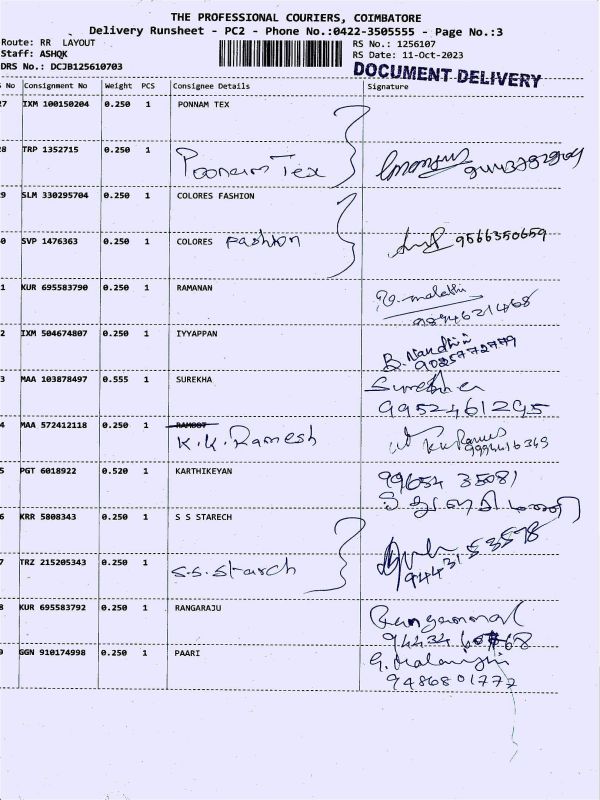 THE PROFESSIONAL COURIERS, COIMBATORE
Delivery Runsheet - PC2 - Phone No.:0422-3505555 - Page No.:3
Route: RR LAYOUT
RS No.: 1256107
Staff: ASHQK
RS Date: 11-Oct-2023
DRS No.: DCJB125610703
DOCUMENT DELIVERY
No Consignment No Weight PCS Consignee Details Signature
7 IXM 100150204 0.250 1 PONNAM TEX
8 TRP 1352715 0.250 1 Poonam Tex
9 SLM 330295704 0.250 1 COLORES FASHION
0 SVP 1476363 0.250 1 COLORES Fashion 9566350659
1 KUR 695583790 0.250 1 RAMANAN malathi
9894621468
2 IXM 504674807 0.250 1 IYYAPPAN B. Nandhini
9025772779
3 MAA 103878497 0.555 1 SUREKHA Surekha
9952461295
4 MAA 572412118 0.250 1 K.K. Ramesh
9994416369
5 PGT 6018922 0.520 1 KARTHIKEYAN 99654 35081
6 KRR 5808343 0.250 1 S S STARECH
7 TRZ 215205343 0.250 1 S.S. Starch 9443153578
8 KUR 695583792 0.250 1 RANGARAJU
9 GGN 910174998 0.250 1 PAARI
9486801772